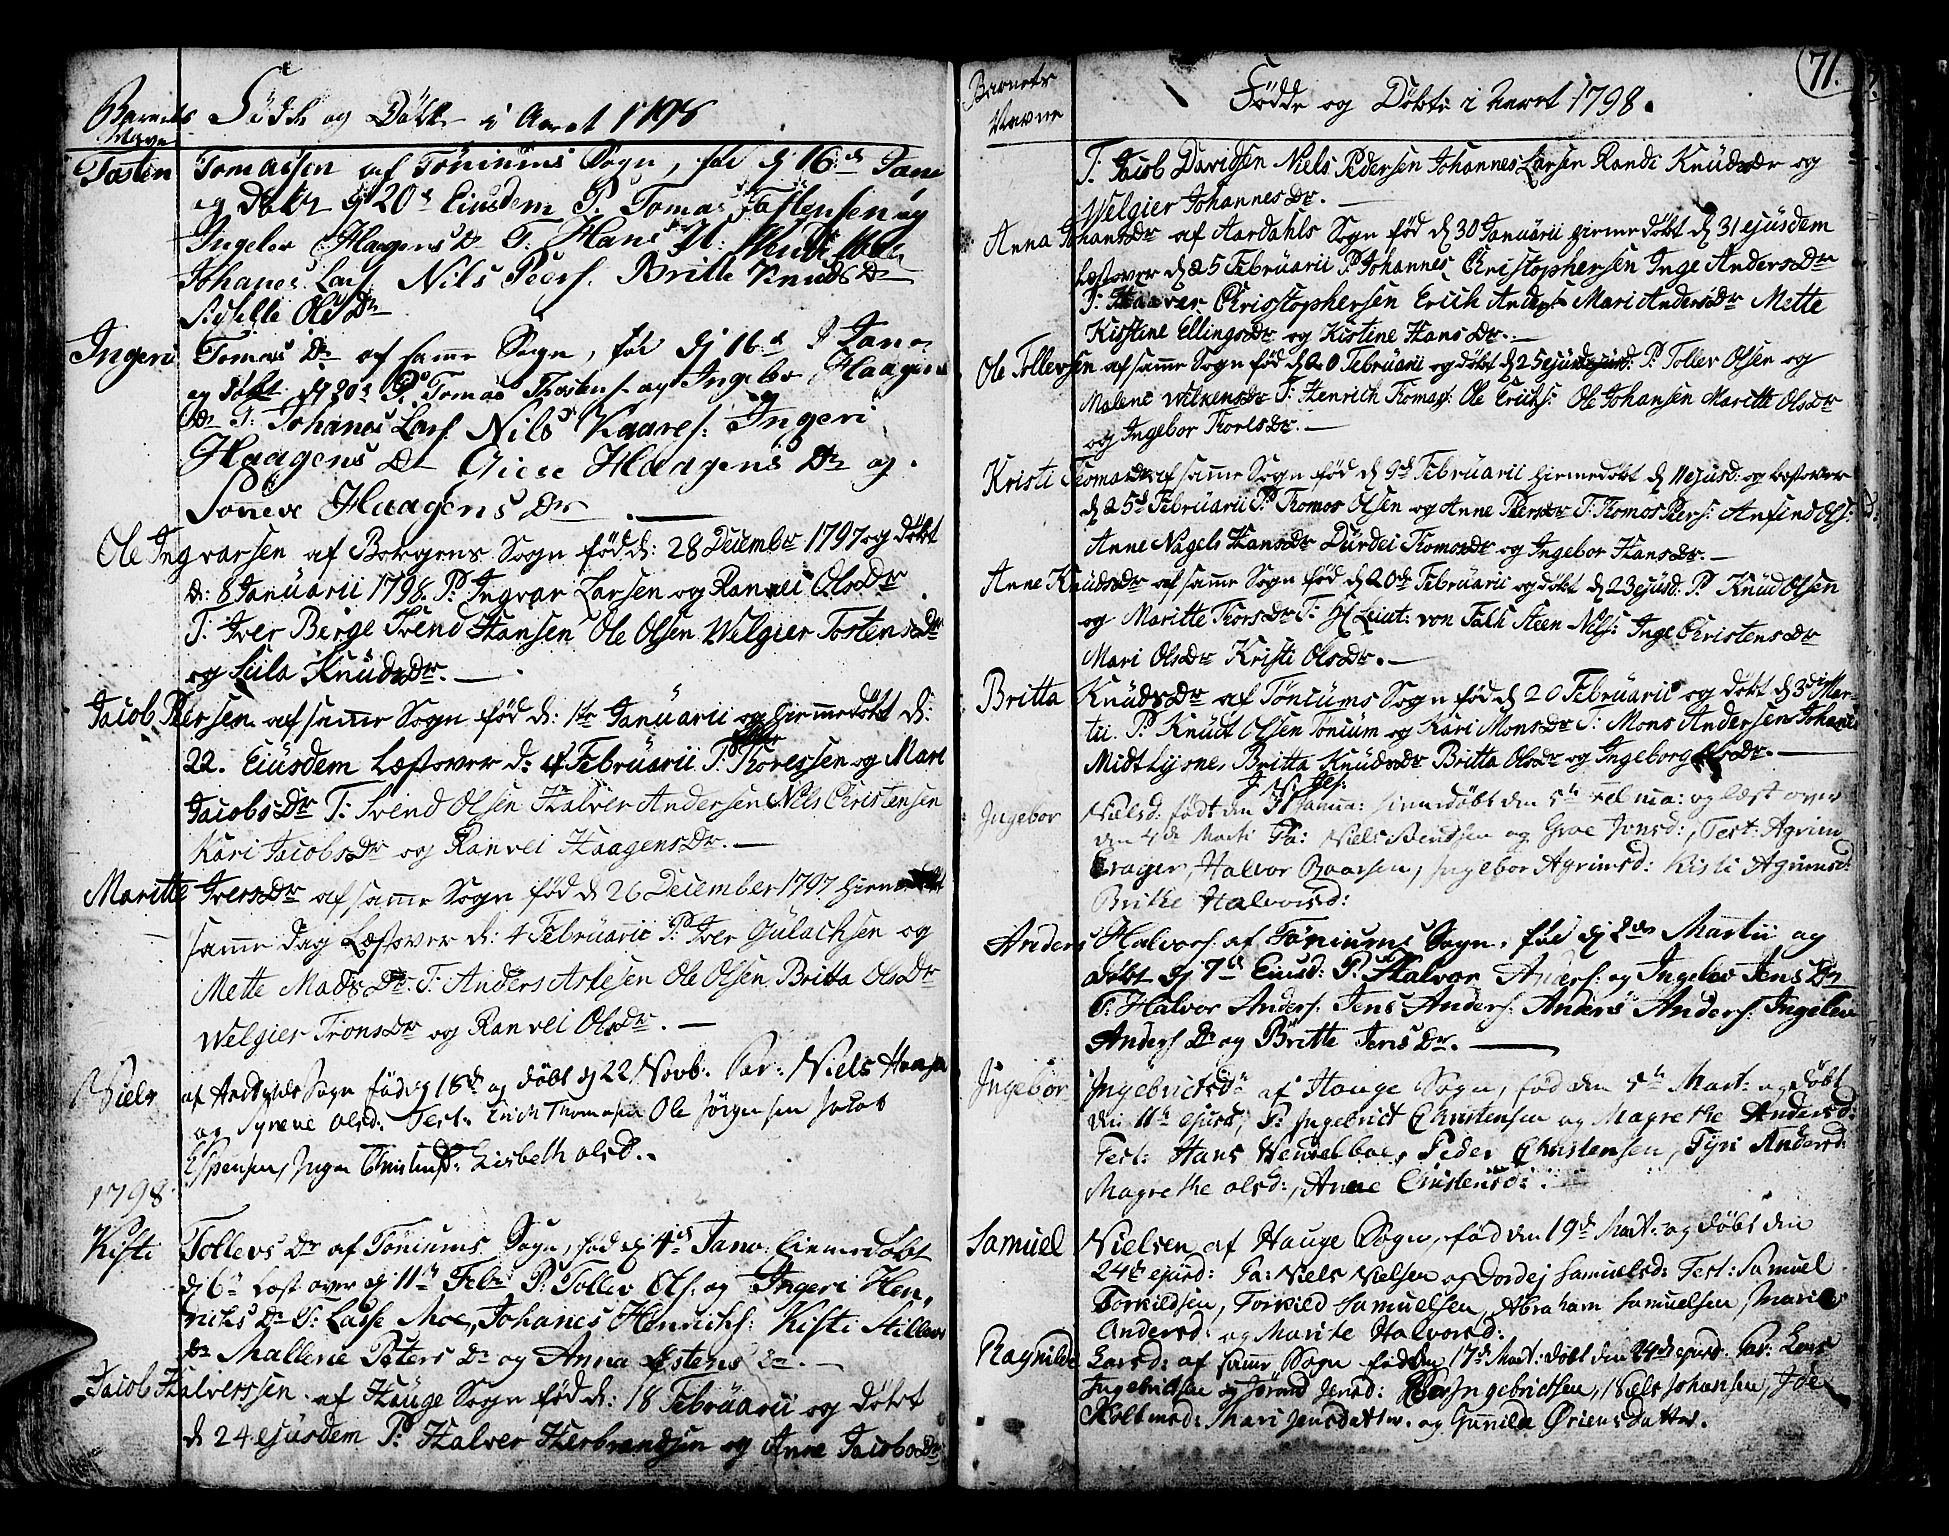 Barnets Navne
Födde og Döbte i Aaret 1798
Tosten Tomassen af Töniums Sogn, föd dj 16d Janu
og Döbt dj 20d Eiusdem P: Tomas Tostensen og
Ingebor Haagens Dr T: Hans
Johanes Lars: Nils Peers: Britte Knuds Dr
Sidselle Ols Dr
Ingeri Tomas Dr af samme Sogn, föd dj 16d Janu
og döbt dj 20d P: Tomas Thostens: og Ingebor Haagens
Dr T: Johanes Lars: Nils Kaares: Ingeri
Haagens Dr Giese Haagens Dr og
Sönneve Haagens Dr
Ole Ingvarsen af Borgens Sogn föd d: 28 December 1797 og döbt
d: 8 Januarii 1798. P: Ingvar Larsen og Ranvei OlsDr
T: Iver Birge Svend Hansen Ole Olsen Welgier TostensDr
og Sula KnudsDr.
Jacob Peersen af samme Sogn föd d: 1te Januarii og hiemmedöbt d:
22. Eiusdem Læst over d: 4 Februarii P: Thoressen og Mari
JacobsDr T: Svend Olsen Halver Andersen Niels Christensen
Kari JacobsDr og Ranvei HaagensDr.
Maritte IversDr af samme Sogn föd d 26 December 1797 hiemmedöbt
samme Dag Læst over d: 4 Februarii P: Iver Gulachsen og
Mette MadsDr. T: Anders Aslesen Ole Olsen Britta OlsDr
Welgier TronsDr og Ranvei OlsDr.
Niels af Aardahls Sogn föd dj 18de og döbt dj 22 Novb: Par: Niels Haagen
og Synneve Olsd: Test: Erich Thomasen Ole Jörgensen Jacob
Espensen, Inger Christensd: Lisbeth Olsd.
1798
Kisti Tollevs Dr af Töniums Sogn, föd dj 4d Janv. hiemmedöbt
dj 6te Læst over dj 11te Febr: P: Tollev Ols: og Ingeri Hen,
richs Dr T: Lasse Moe, Johanes Henrichs: Kisti
Dr Mallene Peters Dr og Anna Estens Dr.
Jacob Halverssen af Hauge Sogn föd d: 18 Februarii og döbt
d 24 ejusdem P: Halver Herbrandsen og Anne JacobsDr
71.
Barnets Navne
Födde og Döbte i Aaret 1798.
T: Jacob Davidsen Niels Pedersen Johannes Larsen Randi KnudsDr og
Welgier JohannesDr.
Anna JohansDr af Aardahls Sogn föd d 30 Januarii hiemedöbt d 31 ejusdem
Læst over d 25 Februarii P: Johannes Christophersen Inge AndersDr
T: Haaver Christophersen Erich Anders: Mari AndersDr Mette
Kisstine EllingsDr og Kistine HansDr.
Ole Tollevsen af samme Sogn föd d 20 Februarii og döbt d 25 ejusd: P: Tollev Olsen og
Malene WilkensDr T: Henrich Tomas: Ole Erichs: Ole Johansen Maritte OlsDr
og Ingebor TorlsDr.
Kristi TomasDr af samme Sogn föd d 9de Februarii hiemedöbt d 11 ejusd: og læst over
d 25de Februarii P: Tomos Olsen og Anne PeersDr T: Tomos Peers: Anfind Ols:
Anne Nagels HansDr Durdei TomosDr og Ingebor HansDr.
Anne KnudsDr af samme Sogn föd d 20de Februarii og döbt d 23 ejusd: P: Knud Olsen
og Maritte TorsDr T: H: Lieut: von Falk Steen Nils: Inge ChristensDr
Mari OlsDr Kristi OlsDr.
Britta KnudsDr af Töniums Sogn föd d 20 Februarii og döbt d 3die Mar-
tii. P: Knudt Olsen Tönium og Kari MonsDr T: Mons Andersen Johanes
Midtlysne, Britta KnudsDr Britta OlsDr og Ingeborg OlsDr.
Ingebor Nielsd: födt den hiemmedöbt den 5te og læst over
den 4de Marti Pa: Niels Bendsen og Groe Jonsd:, Test: Agrim
Halvor Baarsen, Ingebor Agrimsd: Kisti Agrimsd:
Britte Halvorsd:
Anders Halvors: af Töniums Sogn, föd dj 2de Martii og
döbt dj 7d Eiusd: P: Halvor Anders: og Ingebor Jens Dr
T: Halvor Anders: Jens Anders: Anders Anders: Ingebor
Anders Dr og Britte Jens Dr.
Ingebor Ingebrictsdr af Hauge Sogn, föd den 5te Mart: og döbt
den 11te ejusd, P: Ingebrict Christensen og Magrethe Andersd:
Test: Hans Wendelboe, Peder Christensen, Tyri Andersd:
Magrethe Olsd:, Anne Christensd:
Samuel Nielsen af Hauge Sogn, föd den 19de Mart: og döbt den
24de ejusd: Pa: Niels Nielsen og Dordej Samuelsd: Test: Samuel
Torkildsen, Torkild Samuelsen, Abraham Samuelsen, Marite
Andersd: og Marite Halvorsd:
Ragnilde Larsd: af samme Sogn föd den 17de Mart: döbt den 24de ejusd: Par: Lars
Ingebrictsen og Jörand Jensd: Peer Ingebrictsen, Niels Johansen, Ide
Holtensd: Mari Jensdatter. og Gunnild Örjensdatter.